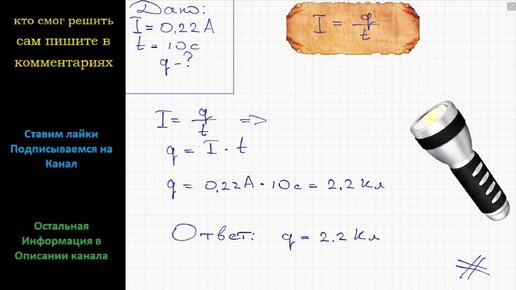 кто смог решить
сам пишите в
комментариях
Ставим лайки
Подписываемся на
Канал
Остальная
Информация в
Описании канала
Дано:
I = 0,22 А
t = 10 с
q - ?
I = q/t
I = q/t =>
q = I · t
q = 0,22А · 10с = 2,2 Кл
Ответ: q = 2,2 Кл